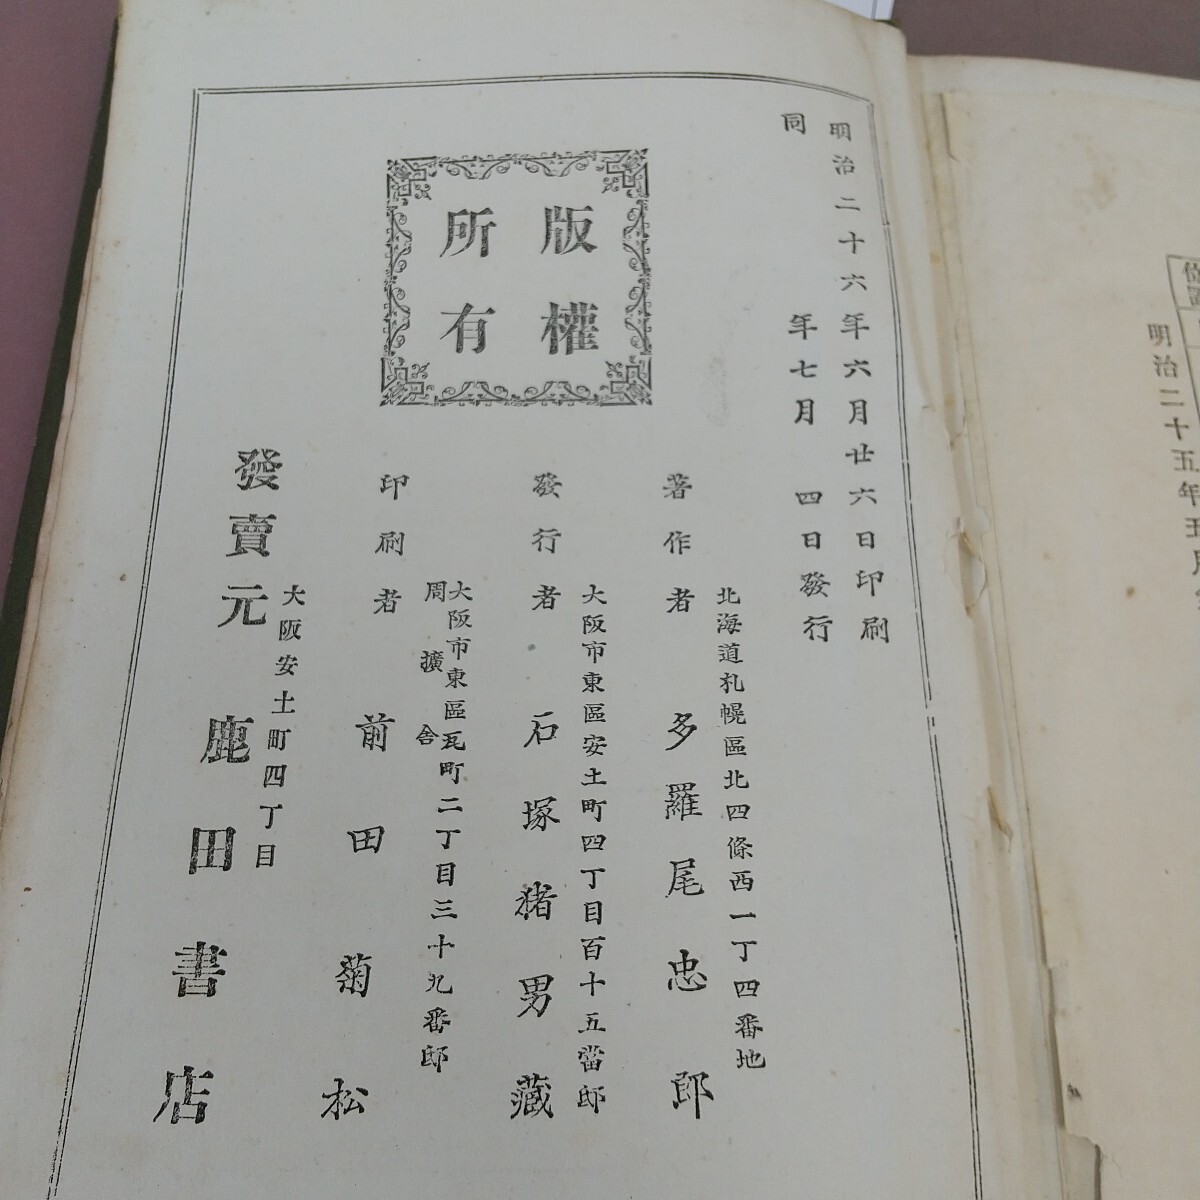 明治二十六年六月廿六日印刷
同年七月四日發行
版權
所有
北海道札幌區北四條西一丁四番地
著作者 多羅尾忠郎
大阪市東區安土町四丁目百十五當邸
發行者 石塚猪男藏
大阪市東區瓦町二丁目三十九番邸
周擴舍
印刷者 前田菊松
大阪安土町四丁目
發賣元 鹿田書店
明治二十五年五月